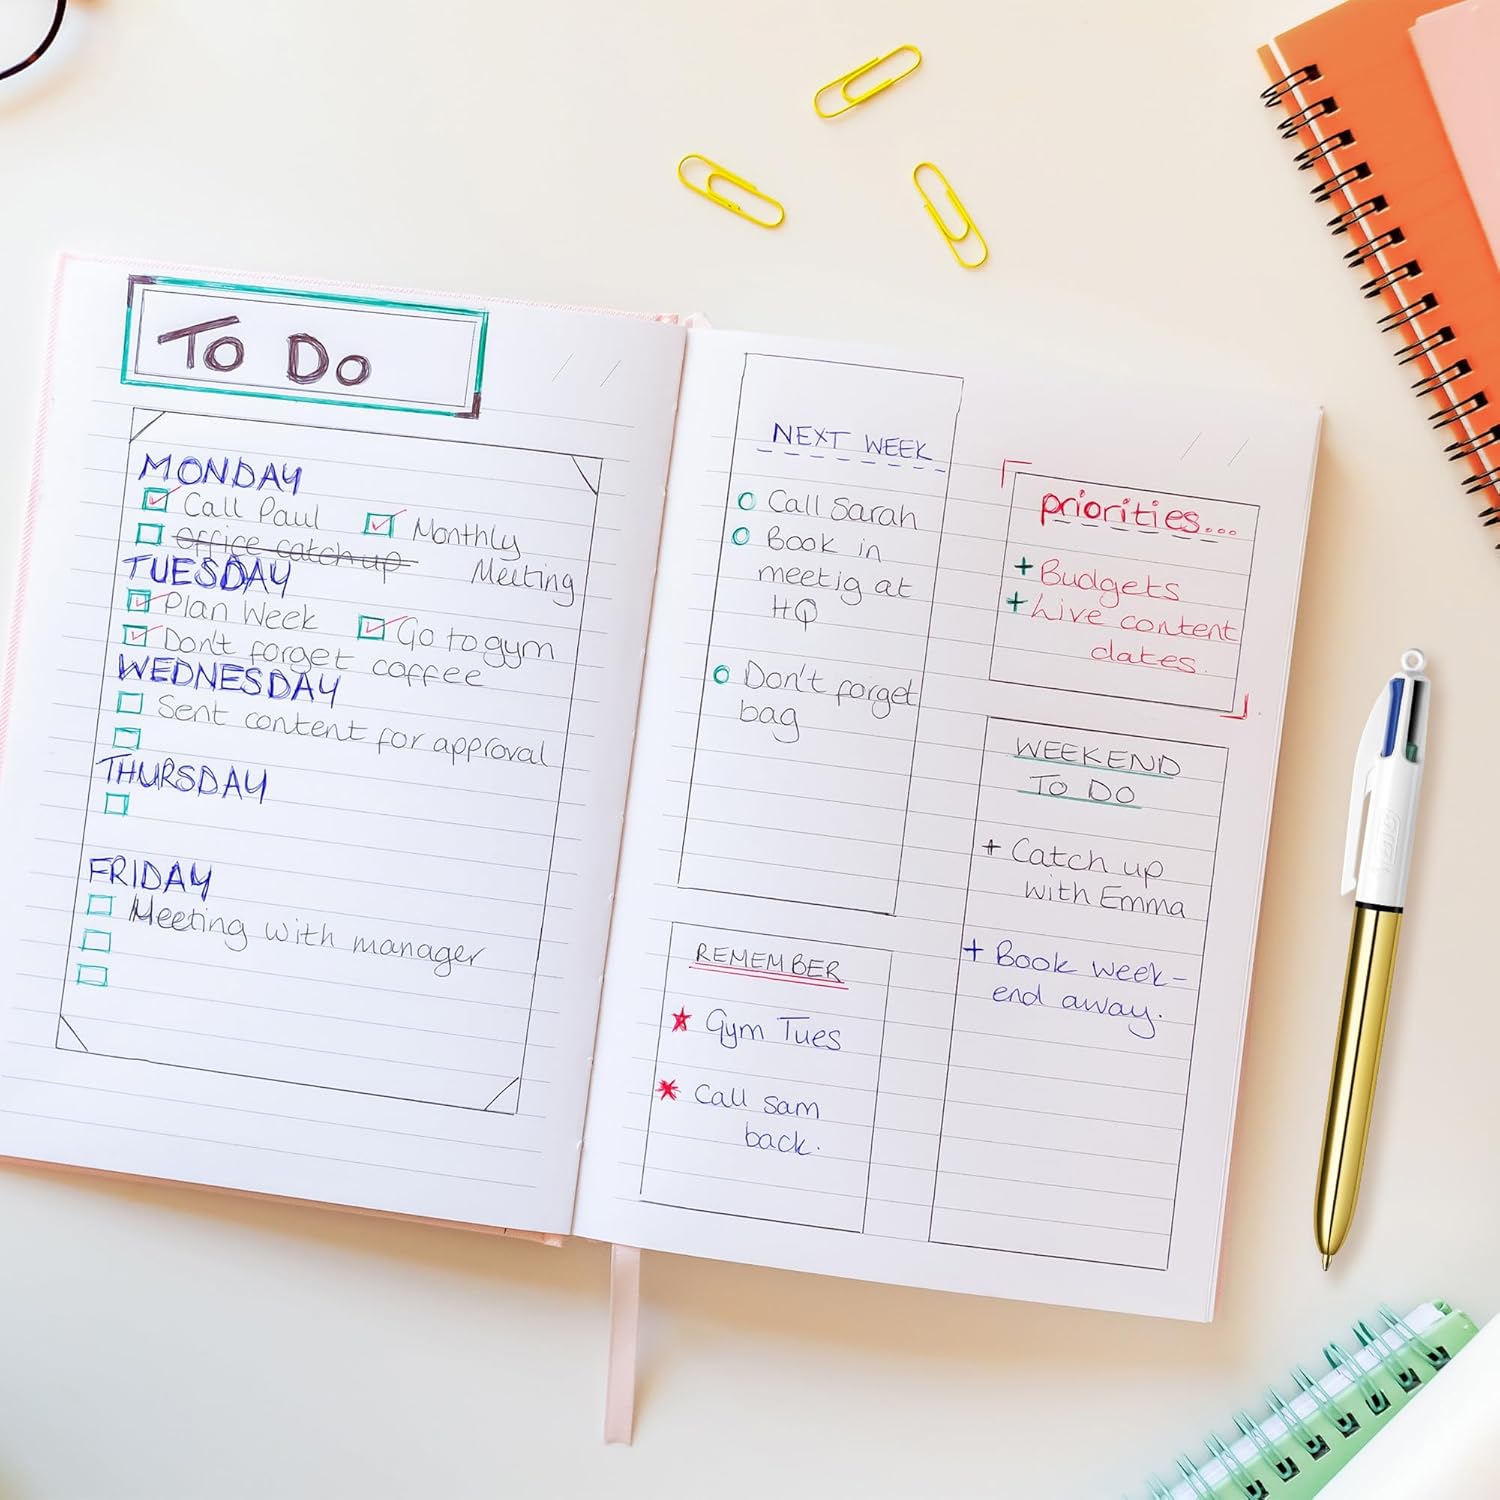 To Do
MONDAY
Call Paul
Monthly
Meeting
office catch up
TUESDAY
Plan Week
Go to gym
Don't forget coffee
WEDNESDAY
Sent content for approval
THURSDAY
FRIDAY
Meeting with manager
NEXT WEEK
Call Sarah
Book in
meetig at
HQ
Don't forget
bag
priorities...
+ Budgets
+ Live content
dates.
WEEKEND
TO DO
+ Catch up
with Emma
+ Book week-
end away.
REMEMBER
Gym Tues
Call Sam
back.
BIC